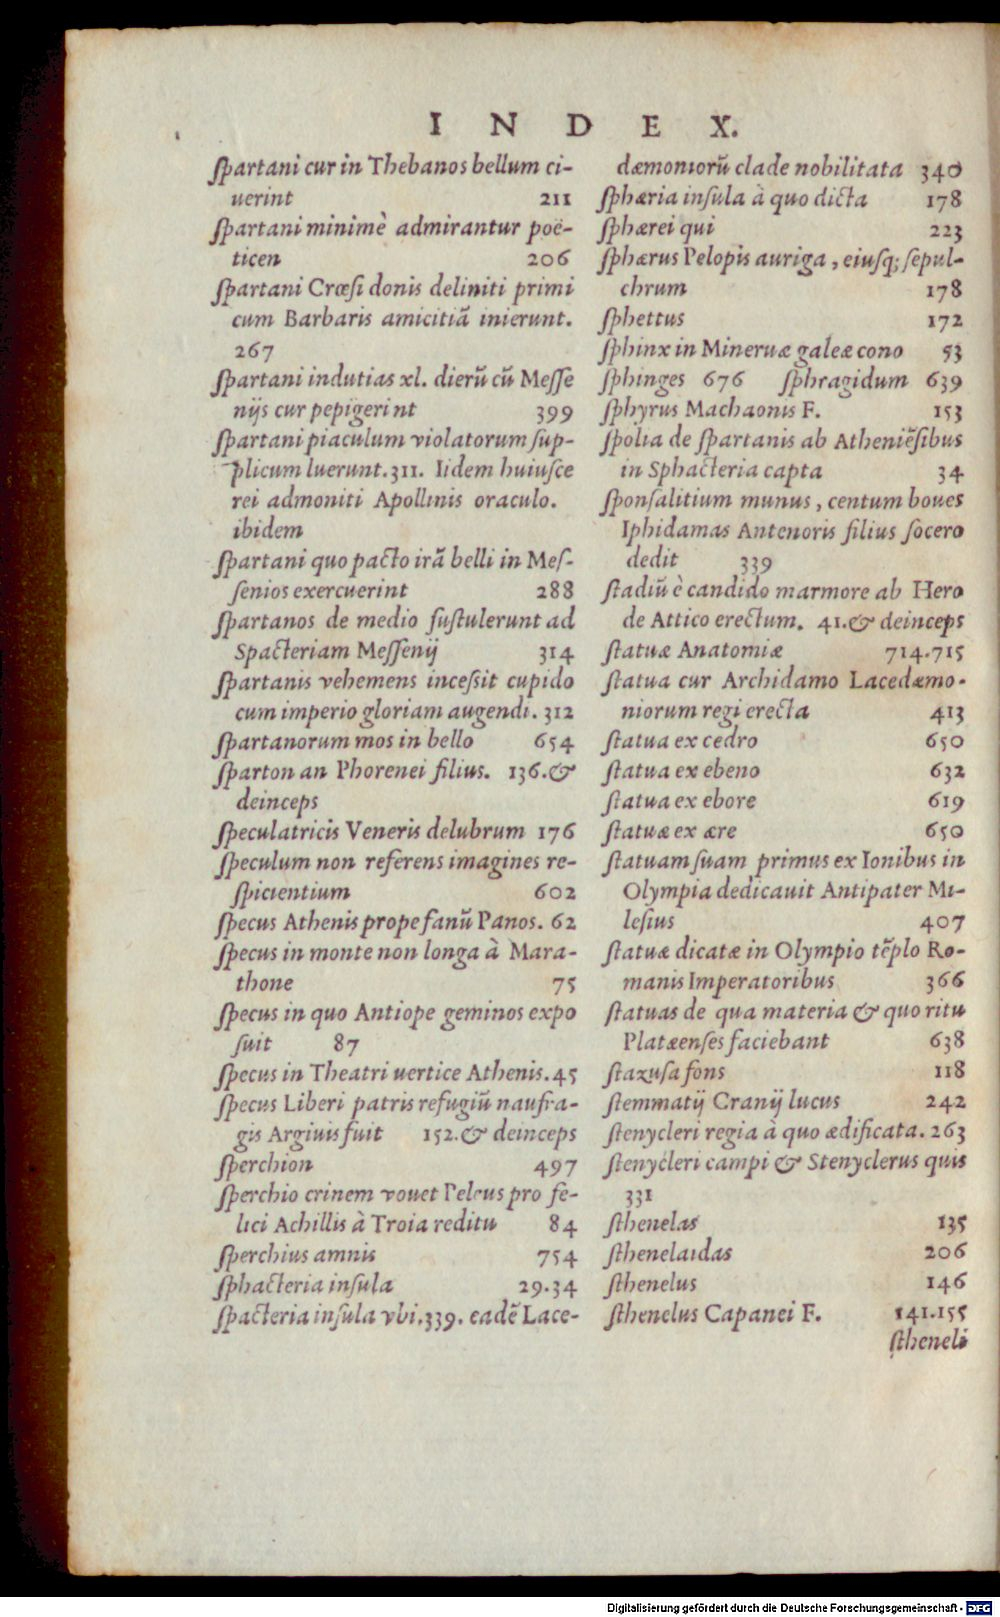 INDEX.
ſpartani cur in Thebanos bellum ci-
uerint 211
ſpartani minimè admirantur poë-
ticen 206
ſpartani Crœſi donis deliniti primi
cum Barbaris amicitiã inierunt.
267
ſpartani indutias xl. dierũ cũ Meſſe
nijs cur pepigerint 399
ſpartani piaculum violatorum ſup-
plicum luerunt.311. Iidem huiuſce
rei admoniti Apollinis oraculo.
ibidem
ſpartani quo pacto irã belli in Meſ-
ſenios exercuerint 288
ſpartanos de medio ſuſtulerunt ad
Spacteriam Meſſenij 314
ſpartanis vehemens inceſsit cupido
cum imperio gloriam augendi. 312
ſpartanorum mos in bello 654
ſparton an Phorenei filius. 136.&
deinceps
ſpeculatricis Veneris delubrum 176
ſpeculum non referens imagines re-
ſpicientium 602
ſpecus Athenis prope fanũ Panos. 62
ſpecus in monte non longa à Mara-
thone 75
ſpecus in quo Antiope geminos expo
ſuit 87
ſpecus in Theatri uertice Athenis.45
ſpecus Liberi patris refugiũ naufra-
gis Argiuis fuit 152.& deinceps
ſperchion 497
ſperchio crinem vouet Peleus pro fe-
lici Achillis à Troia reditu 84
ſperchius amnis 754
ſphacteria inſula 29.34
ſpacteria inſula vbi.339. eadẽ Lace-
dæmoniorũ clade nobilitata 340
ſphæria inſula à quo dicta 178
ſphærei qui 223
ſphærus Pelopis auriga, eiuſq; ſepul-
chrum 178
ſphettus 172
ſphinx in Mineruæ galeæ cono 53
ſphinges 676 ſphragidum 639
ſphyrus Machaonis F. 153
ſpolia de ſpartanis ab Atheniẽſibus
in Sphacteria capta 34
ſponſalitium munus, centum boues
Iphidamas Antenoris filius ſocero
dedit 339
ſtadiũ è candido marmore ab Hero
de Attico erectum. 41.& deinceps
ſtatuæ Anatomiæ 714.715
ſtatua cur Archidamo Lacedæmo-
niorum regi erecta 413
ſtatua ex cedro 650
ſtatua ex ebeno 632
ſtatua ex ebore 619
ſtatuæ ex ære 650
ſtatuam ſuam primus ex Ionibus in
Olympia dedicauit Antipater Mi-
leſius 407
ſtatuæ dicatæ in Olympio tẽplo Ro-
manis Imperatoribus 366
ſtatuas de qua materia & quo ritu
Platæenſes faciebant 638
ſtazuſa fons 118
ſtemmatij Cranij lucus 242
ſtenycleri regia à quo ædificata. 263
ſtenycleri campi & Stenyclerus quis
331
ſthenelas 135
ſthenelaidas 206
ſthenelus 146
ſthenelus Capanei F. 141.155
ſtheneli
Digitalisierung gefördert durch die Deutsche Forschungsgemeinschaft - DFG